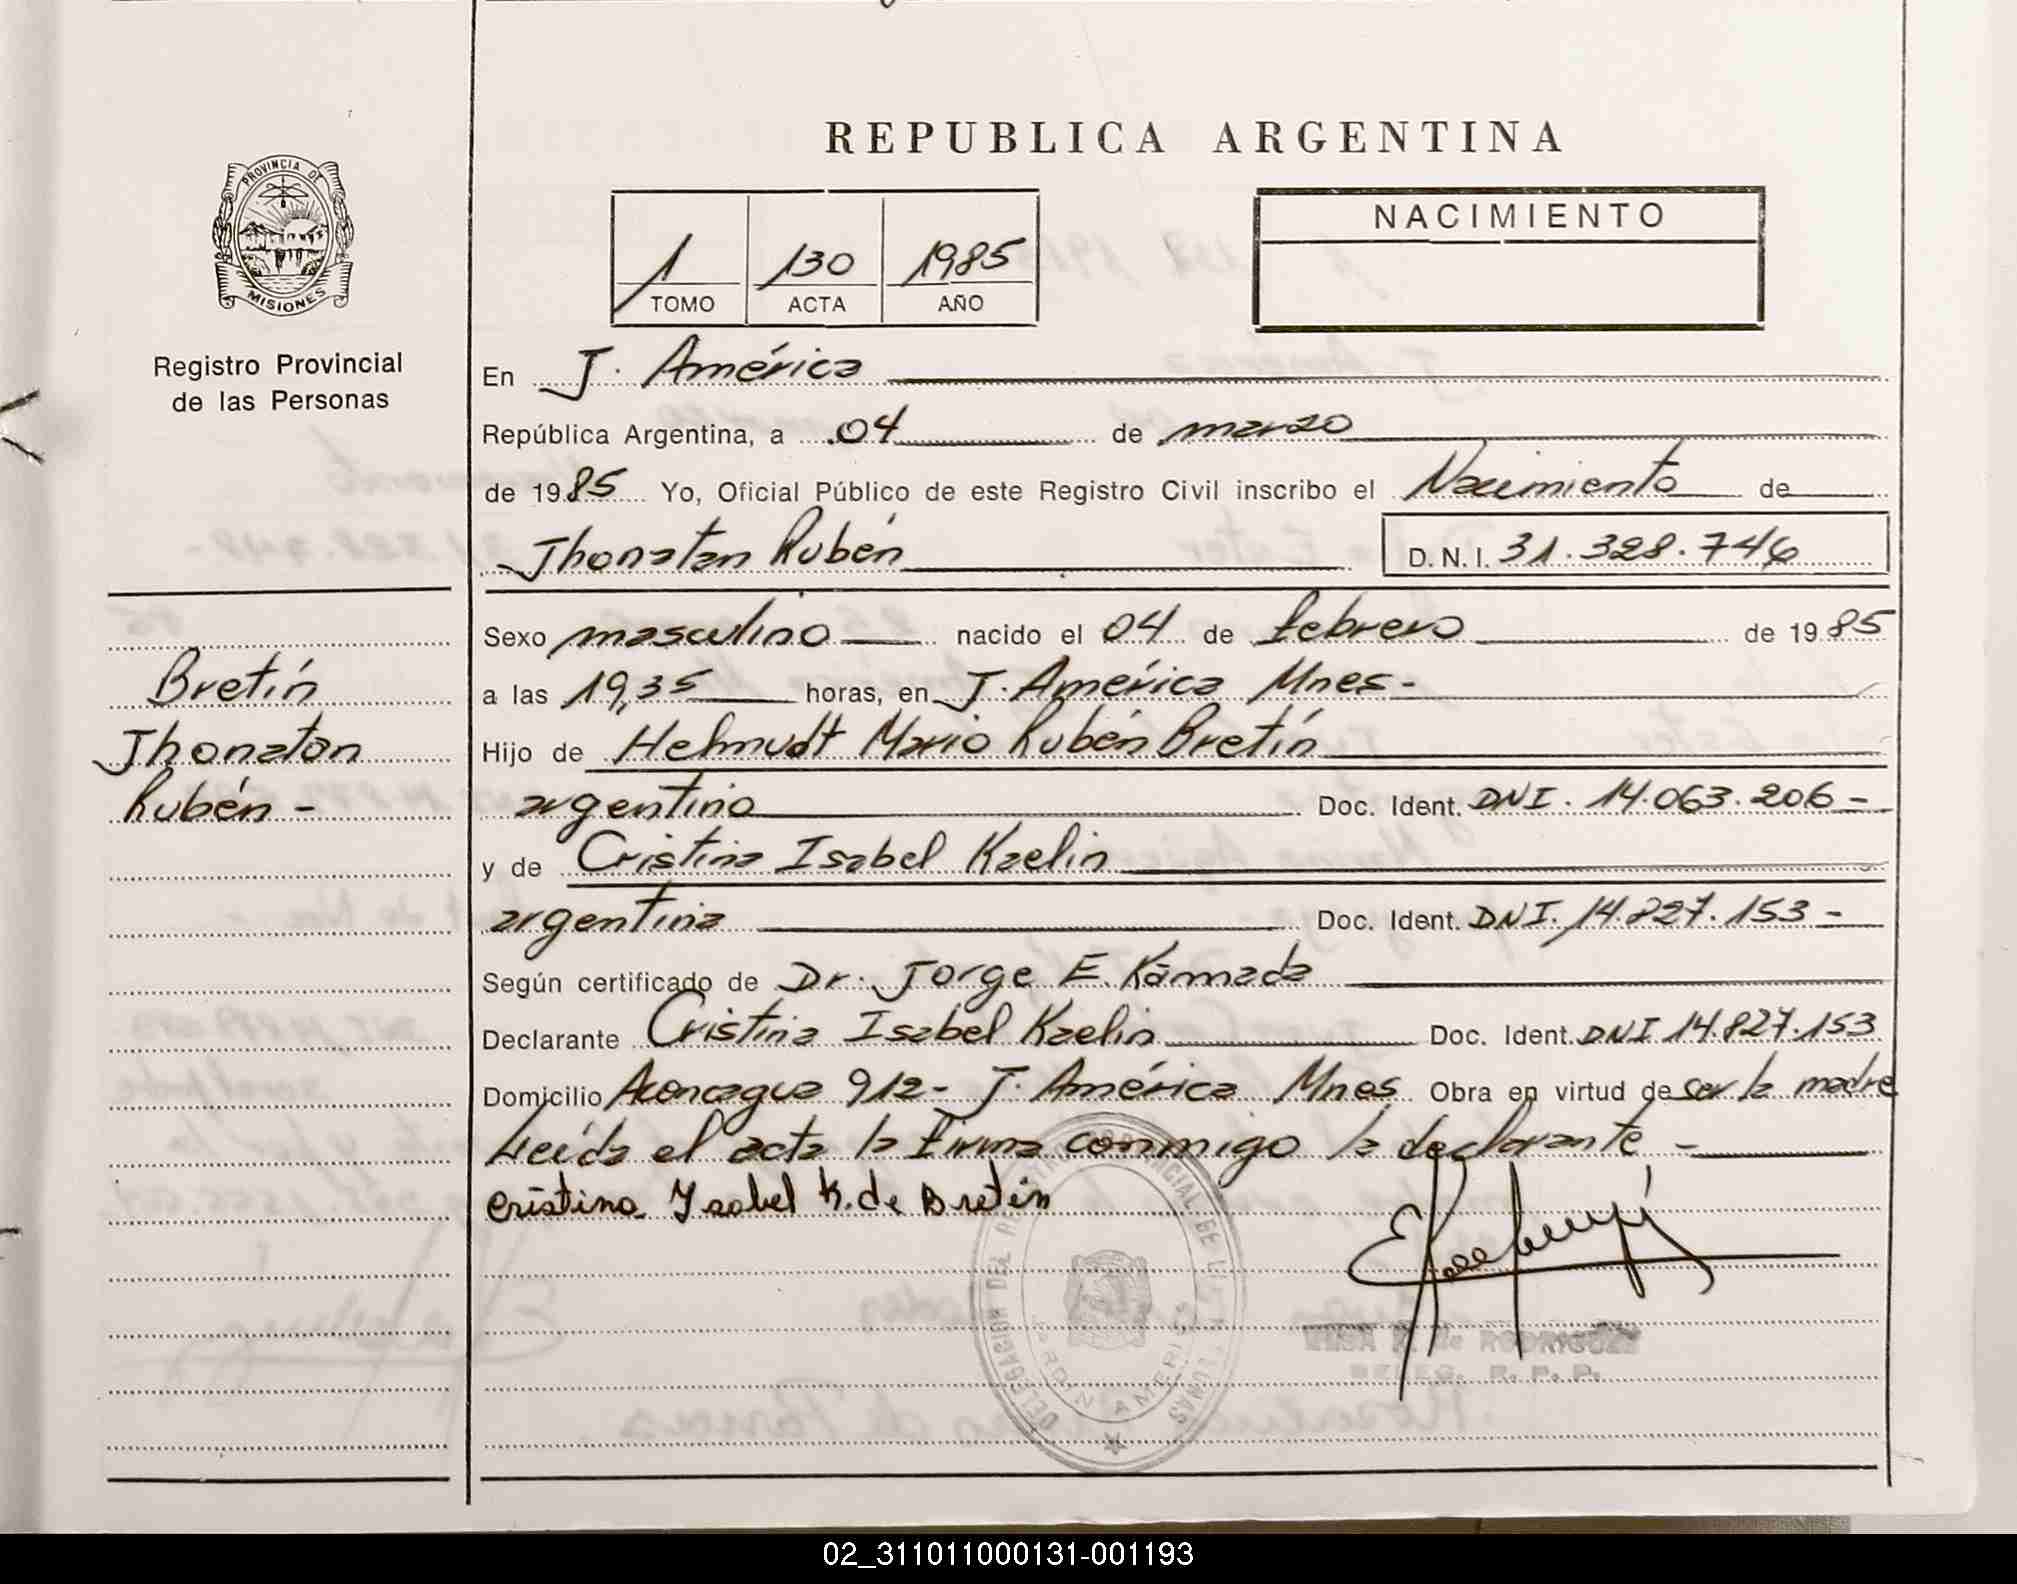 REPUBLICA ARGENTINA
PROVINCIA DE
MISIONES
Registro Provincial
de las Personas
1 130 1985
TOMO ACTA AÑO
NACIMIENTO
En J. América
República Argentina, a 04 de marzo
de 1985 Yo, Oficial Público de este Registro Civil inscribo el Nacimiento de
Jhonatan Rubén D.N.I. 31.328.746
Sexo masculino nacido el 04 de febrero de 1985
a las 19,35 horas, en J. América Mnes-
Hijo de Helmudt Mario Rubén Bretín
argentino Doc. Ident. DNI. 14.063.206-
y de Cristina Isabel Kaelin
argentina Doc. Ident. DNI. 14.827.153-
Según certificado de Dr. Jorge E. Kamada
Declarante Cristina Isabel Kaelin Doc. Ident. DNI 14.827.153
Domicilio Aconcagua 912- J. América Mnes Obra en virtud de ser la madre
Leída el acta la firma conmigo la declarante-
Cristina Ysabel K. de Bretin
Bretín
Jhonatan
Rubén-
DELEGACION DEL REGISTRO PROVINCIAL DE LAS PERSONAS
JARDIN AMERICA
ELSA K. de RODRIGUEZ
DELEG. R. P. P.
02_311011000131-001193